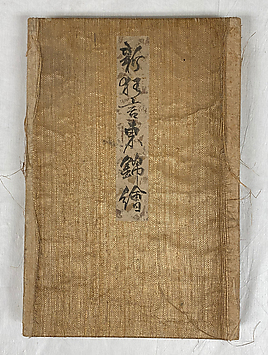 新狂言東錦繪